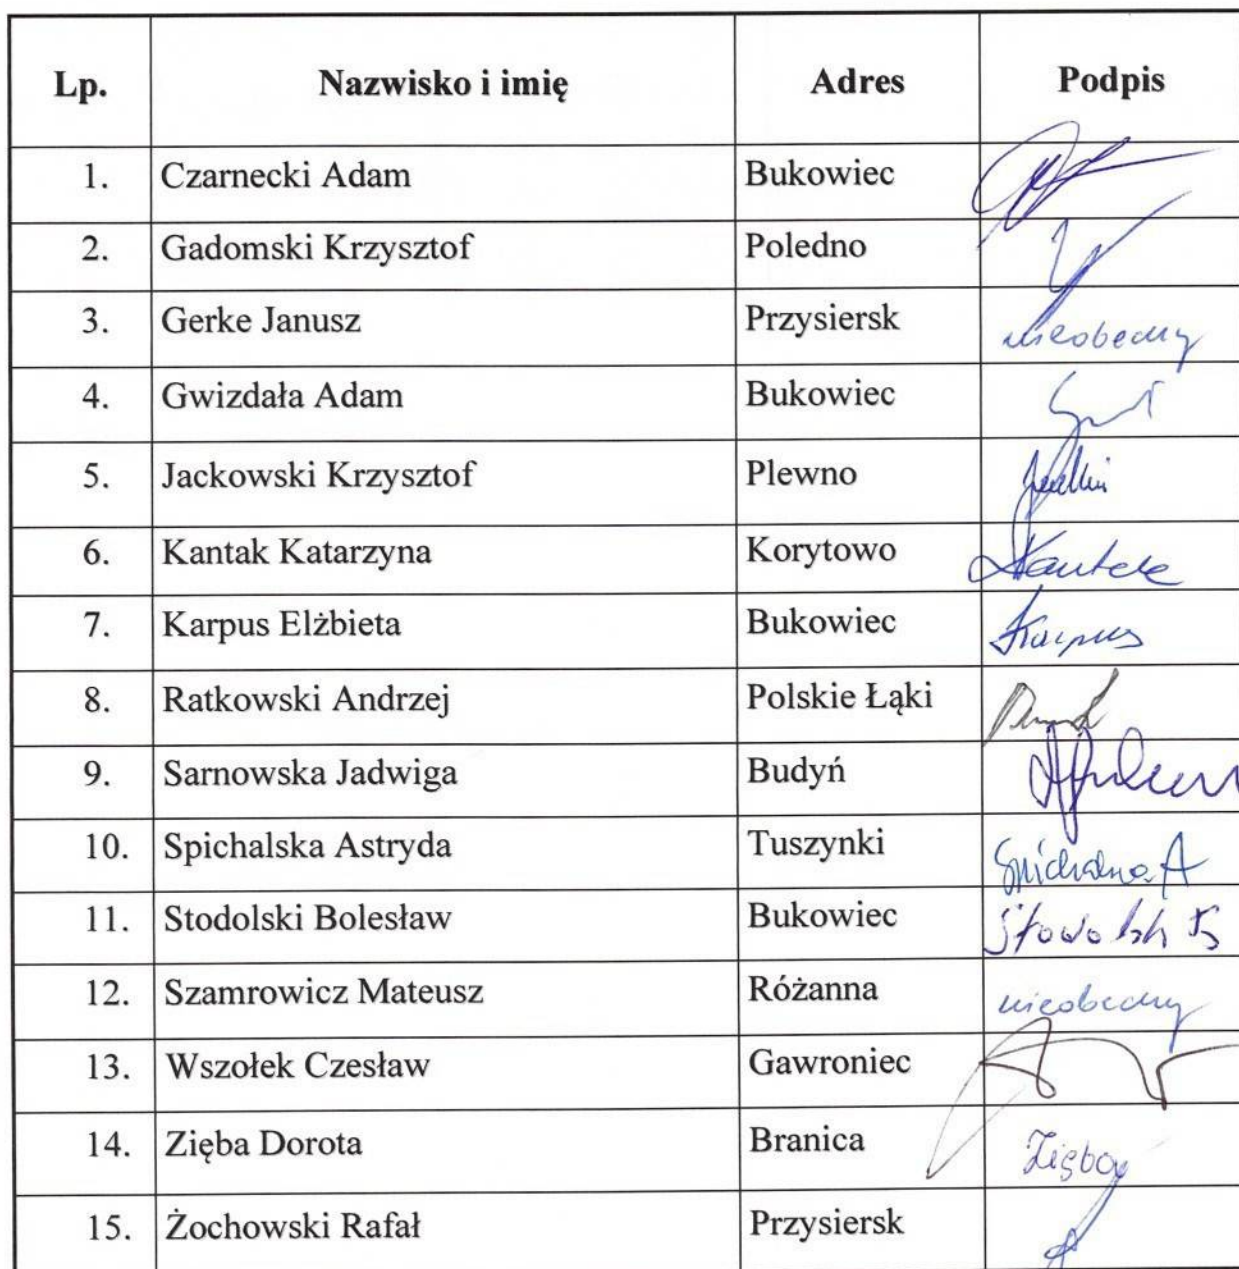 Lp. Nazwisko i imię Adres Podpis
1. Czarnecki Adam Bukowiec
2. Gadomski Krzysztof Poledno
3. Gerke Janusz Przysiersk nieobecny
4. Gwizdała Adam Bukowiec
5. Jackowski Krzysztof Plewno
6. Kantak Katarzyna Korytowo Kantak
7. Karpus Elżbieta Bukowiec Karpus
8. Ratkowski Andrzej Polskie Łąki
9. Sarnowska Jadwiga Budyń
10. Spichalska Astryda Tuszynki
11. Stodolski Bolesław Bukowiec
12. Szamrowicz Mateusz Różanna nieobecny
13. Wszołek Czesław Gawroniec
14. Zięba Dorota Branica Zięba
15. Żochowski Rafał Przysiersk